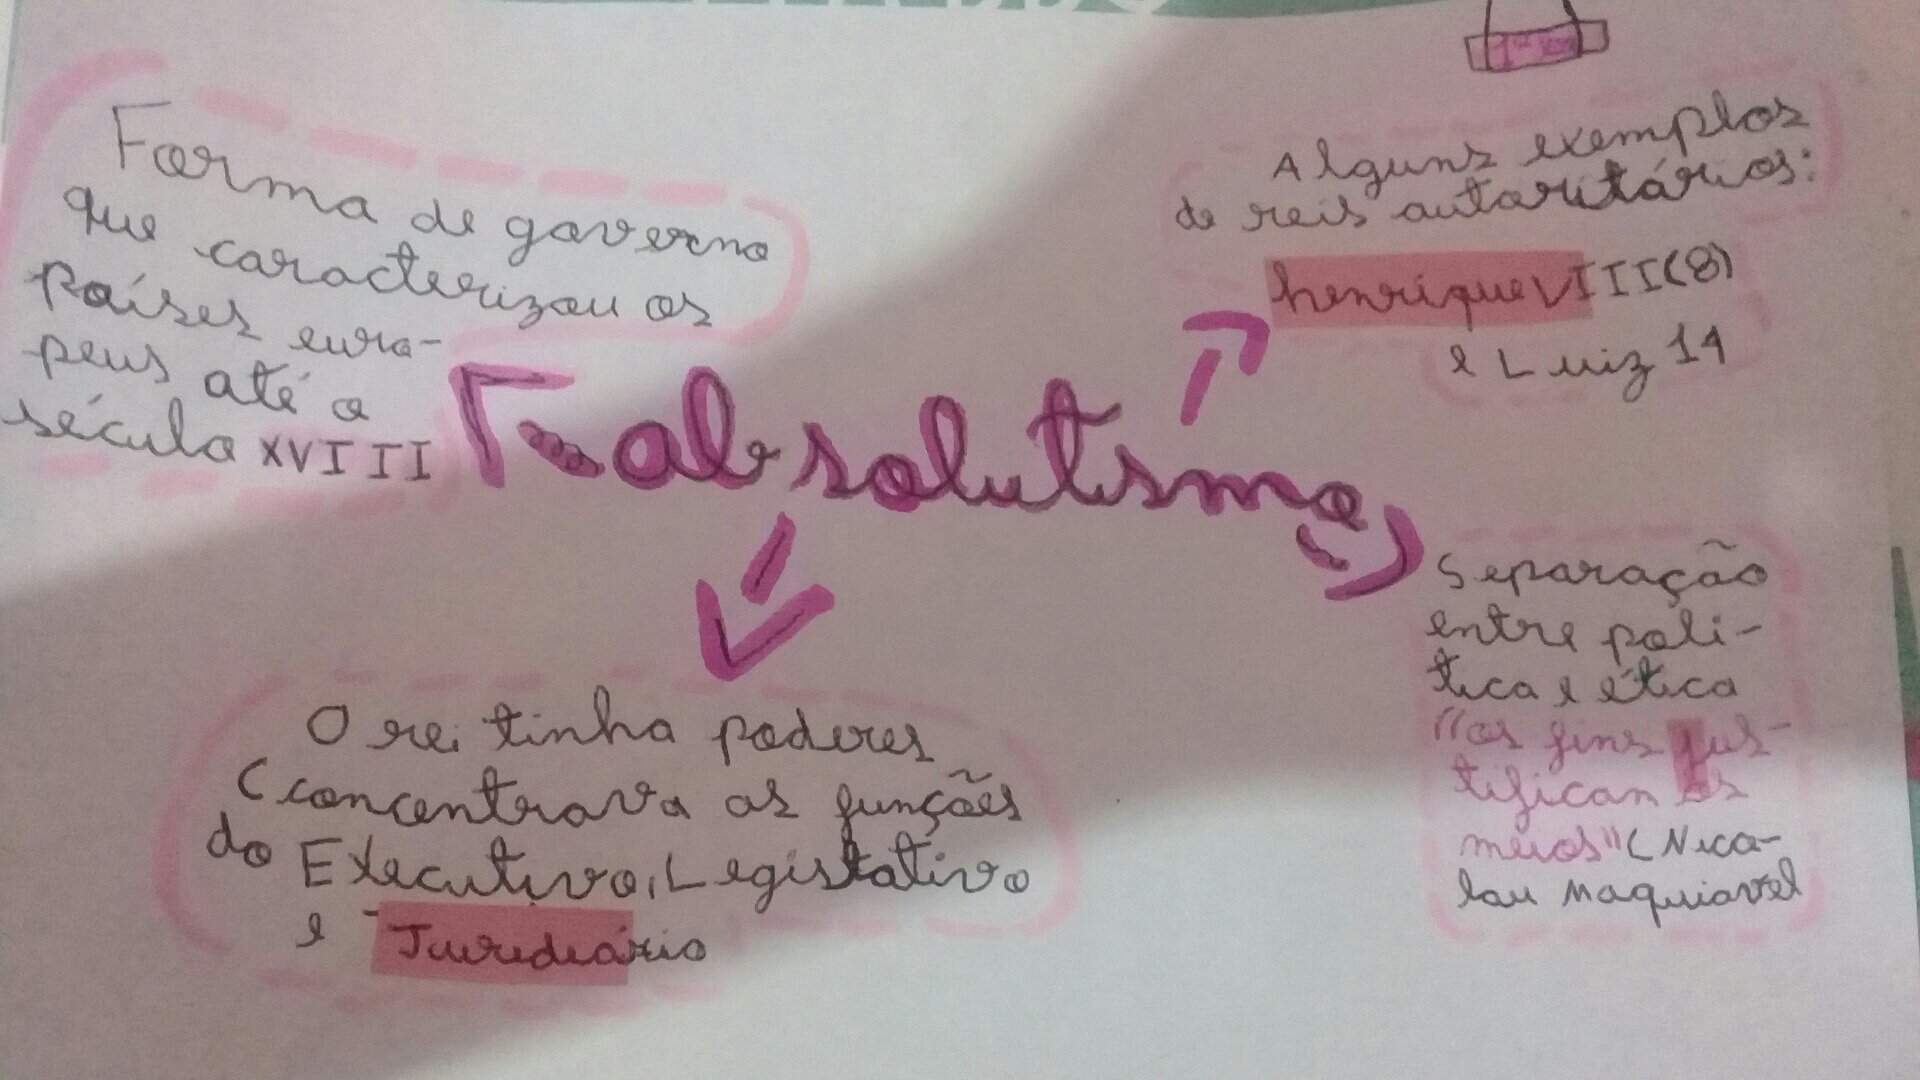 Forma de governo
que caracterizou os
países euro-
peus até o
século XVIII
Alguns exemplos
de reis autoritários:
henrique VIII(8)
e Luiz 14
absolutismo
Separação
entre polí-
tica e ética
"os fins jus-
tifican os
meios" (Nico-
lau Maquiavel
O rei tinha poderes
(concentrava as funções
do Executivo, Legistativo
e Jurediário